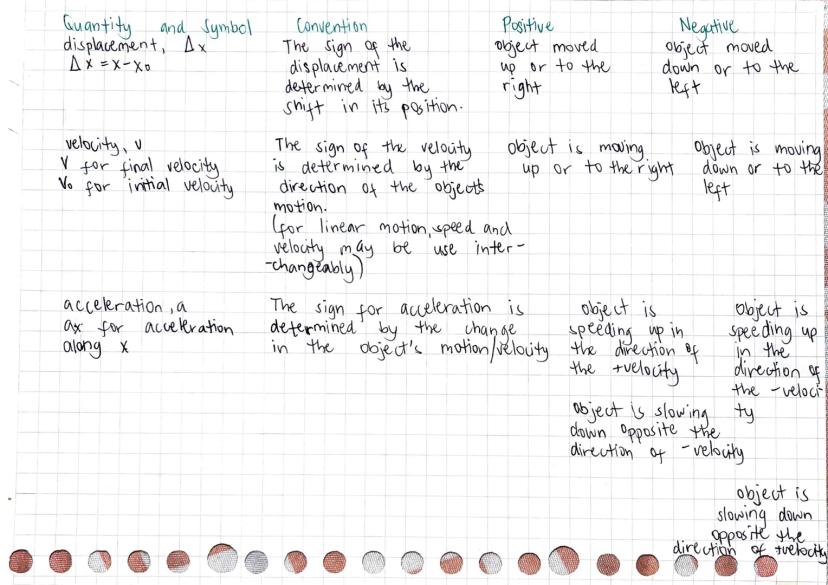 Quantity and Symbol
displacement, Δx
Δx = x-x₀
Convention
The sign of the
displacement is
determined by the
shift in its position.
Positive
object moved
up or to the
right
Negative
object moved
down or to the
left
velocity, v
v for final velocity
v₀ for initial velocity
The sign of the velocity
is determined by the
direction of the objects
motion.
(for linear motion, speed and
velocity may be use inter-
-changeably)
object is moving
up or to the right
object is moving
down or to the
left
acceleration, a
ax for acceleration
along x
The sign for acceleration is
determined by the change
in the object's motion/velocity
object is
speeding up in
the direction of
the +velocity
object is slowing
down opposite the
direction of -velocity
object is
speeding up
in the
direction of
the -veloci
ty
object is
slowing down
opposite the
direction of +velocity